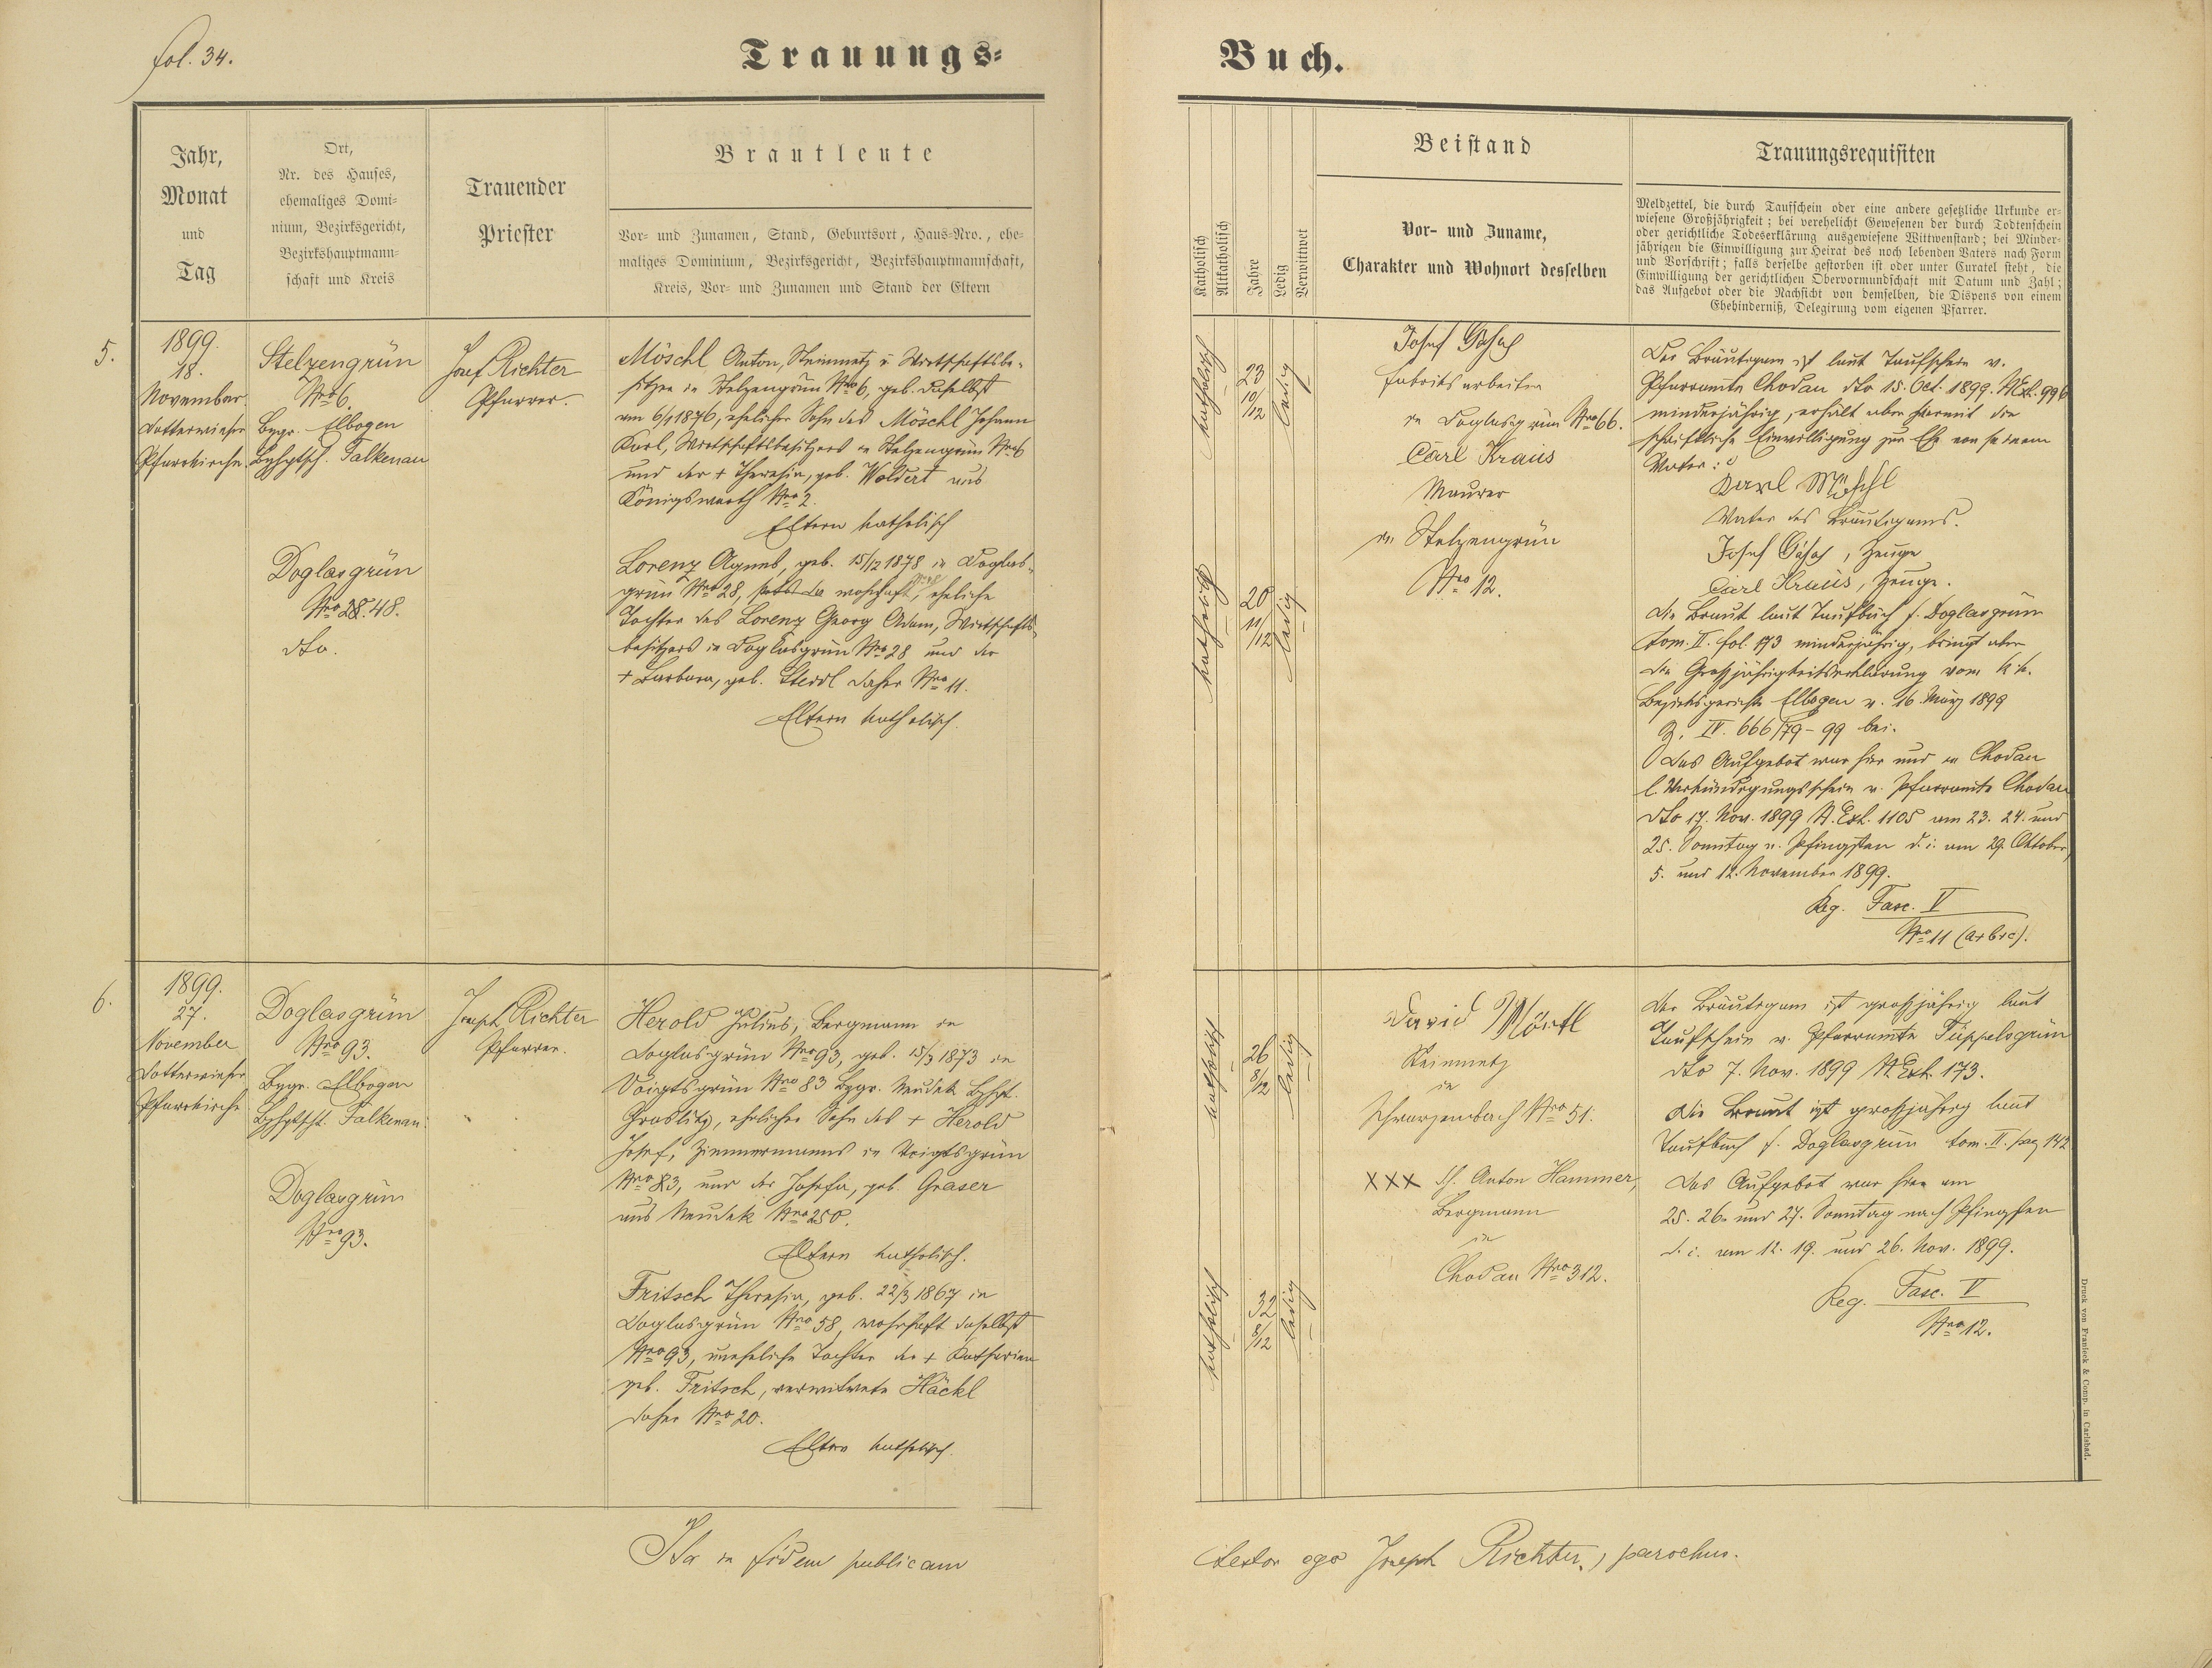 fol. 34.
Trauungs-
Buch.
Jahr,
Monat
und
Tag
Ort,
Nr. des Hauses,
ehemaliges Domi-
nium, Bezirksgericht,
Bezirkshauptmann-
schaft und Kreis
Trauender
Priester
Brautleute
Vor- und Zunamen, Stand, Geburtsort, Haus-Nro., ehe-
maliges Dominium, Bezirksgericht, Bezirkshauptmannschaft,
Kreis, Vor- und Zunamen und Stand der Eltern
Katholisch
Altkatholisch
Jahre
Ledig
Verwittwet
Beistand
Vor- und Zuname,
Charakter und Wohnort desselben
Trauungsrequisiten
Meldzettel, die durch Taufschein oder eine andere gesetzliche Urkunde er-
wiesene Großjährigkeit; bei verehelicht Gewesenen der durch Todtenschein
oder gerichtliche Todeserklärung ausgewiesene Wittwenstand; bei Minder-
jährigen die Einwilligung zur Heirat des noch lebenden Vaters nach Form
und Vorschrift; falls derselbe gestorben ist oder unter Curatel steht, die
Einwilligung der gerichtlichen Obervormundschaft mit Datum und Zahl;
das Aufgebot oder die Nachsicht von demselben, die Dispens von einem
Ehehinderniß, Delegirung vom eigenen Pfarrer.
5.
1899.
18.
November
Dotterwieser
Pfarrkirche
Stelzengrün
Nro 6.
Bzgr. Elbogen
Bzhptsch. Falkenau
Doglasgrün
Nro 28. 48.
dto.
Josef Richter
Pfarrer.
Möschl Anton, Steinmetz u Wirtschaftsbe-
sitzer in Stelzengrün Nro 6, geb. daselbst
am 6/1 1876, ehelicher Sohn des Möschl Johann
Karl, Wirtschaftsbesitzers in Stelzengrün Nro 6
und der + Theresia, geb. Woldert aus
Königswerth Nro 2.
Eltern katholisch
Lorenz Agnes, geb. 15/12 1878 in Doglas-
grün Nro 28, wohnhaft, eheliche
Tochter des Lorenz Georg Adam, Wirtschafts-
besitzers in Doglasgrün Nro 28 und der
+ Barbara, geb. Sterdl daher Nro 11.
Eltern katholisch.
katholisch
23
10/12
ledig
katholisch
20
11/12
ledig
Josef
Fabriksarbeiter
in Doglasgrün Nro 66.
Carl Kraus
Maurer
in Stelzengrün
Nro 12.
Der Bräutigam ist laut Taufschein v.
Pfarramte Chodau dto 15. Oct. 1899. N.Ex. 996
minderjährig, erhält aber hiermit die
schriftliche Einwilligung zur Ehe von seinem
Vater:
Karl Möschl
Vater des Bräutigams.
Josef , Zeuge
Carl Kraus, Zeuge.
Die Braut laut Taufbuch f. Doglasgrün
tom. II. fol. 173 minderjährig, bringt aber
die Großjährigkeitserklärung vom k.k.
Bezirksgericht Elbogen v. 16. März 1899
Z. IV. 666/79-99 bei.
Das Aufgebot war hier und in Chodau
l. Verkündigungsschein v. Pfarramte Chodau
dto 17. Nov. 1899 N. Exh. 1105 am 23. 24. und
25. Sonntag n. Pfingsten d. i. am 29. Oktober,
5. und 12. November 1899.
Reg. Fasc. V
Nro 11 (a+b+c).
6.
1899.
27.
November
Dotterwieser
Pfarrkirche
Doglasgrün
Nro 93.
Bzgr. Elbogen
Bzhptscht. Falkenau.
Doglasgrün
Nro 93.
Joseph Richter
Pfarrer.
Herold Julius, Bergmann in
Doglasgrün Nro 93, geb. 15/3 1873 in
Voigtsgrün Nro 83 Bzgr. Neudek Bzhpt.
Graslitz, ehelicher Sohn des + Herold
Josef, Zimmermanns in Voigtsgrün
Nro 83, und der Josefa, geb. Graser
aus Neudek Nro 250.
Eltern katholisch.
Fritsch Theresia, geb. 22/3 1867 in
Doglasgrün Nro 58, wohnhaft daselbst
Nro 93, uneheliche Tochter der + Katharina
geb. Fritsch, verwitwete Häckl
daher Nro 20.
Eltern katholisch.
katholisch
26
8/12
ledig
katholisch
32
8/12
ledig
David Mörtl
Steinmetz
in
Schwarzenbach Nro 51.
XXX Anton Hammer,
Bergmann
in
Chodau Nro 312.
Der Bräutigam ist großjährig laut
Taufschein v. Pfarramte Tüppelsgrün
dto 7. Nov. 1899 N. Exh. 173.
Die Braut ist großjährig laut
Taufbuch f. Doglasgrün tom. II. pag 142
Das Aufgebot war hier am
25. 26. und 27. Sonntag nach Pfingsten
d. i. am 12. 19. und 26. Nov. 1899.
Reg. Fasc. V
Nro 12.
Druck von Franieck & Comp. in Carlsbad.
Ita in fidem publicam
testor ego Joseph Richter, parochus.